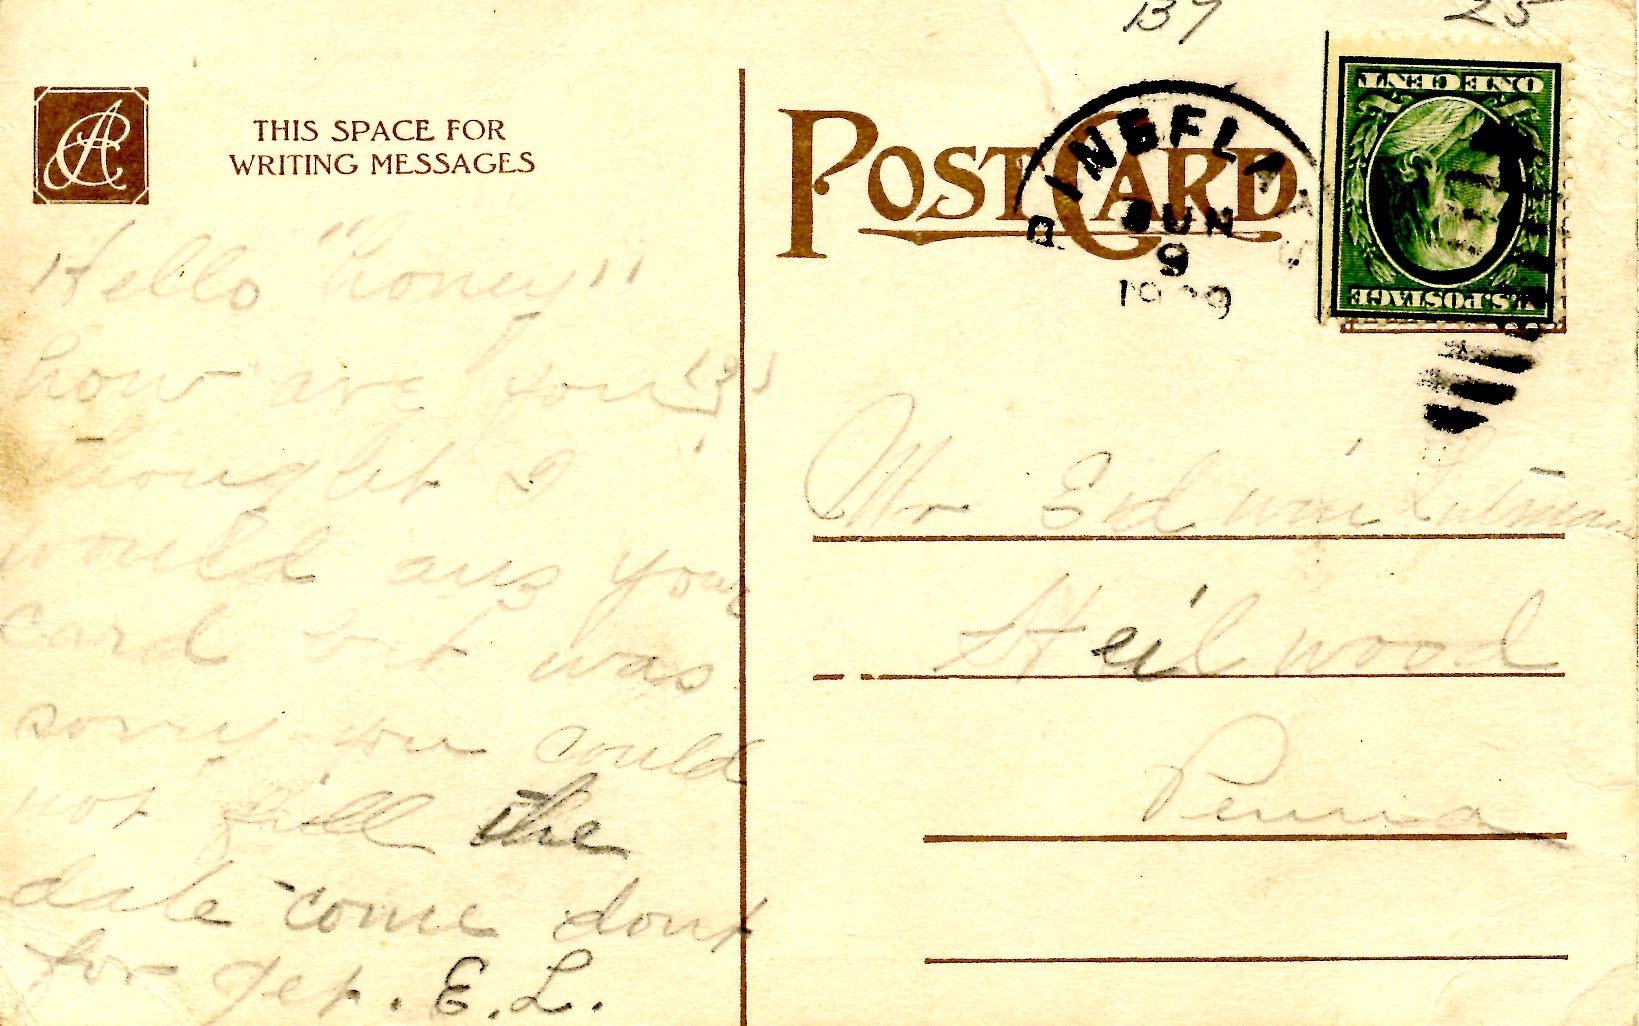 B7 25
THIS SPACE FOR
WRITING MESSAGES
POST CARD
JUN
9
ONE CENT
U.S. POSTAGE
Hello "honey"
how are you (?)
thought I
would ans your
card but was
sorry we could
not fill the
date come dont
for get. E.L.
Mr Edwin
Heilwood
Penna